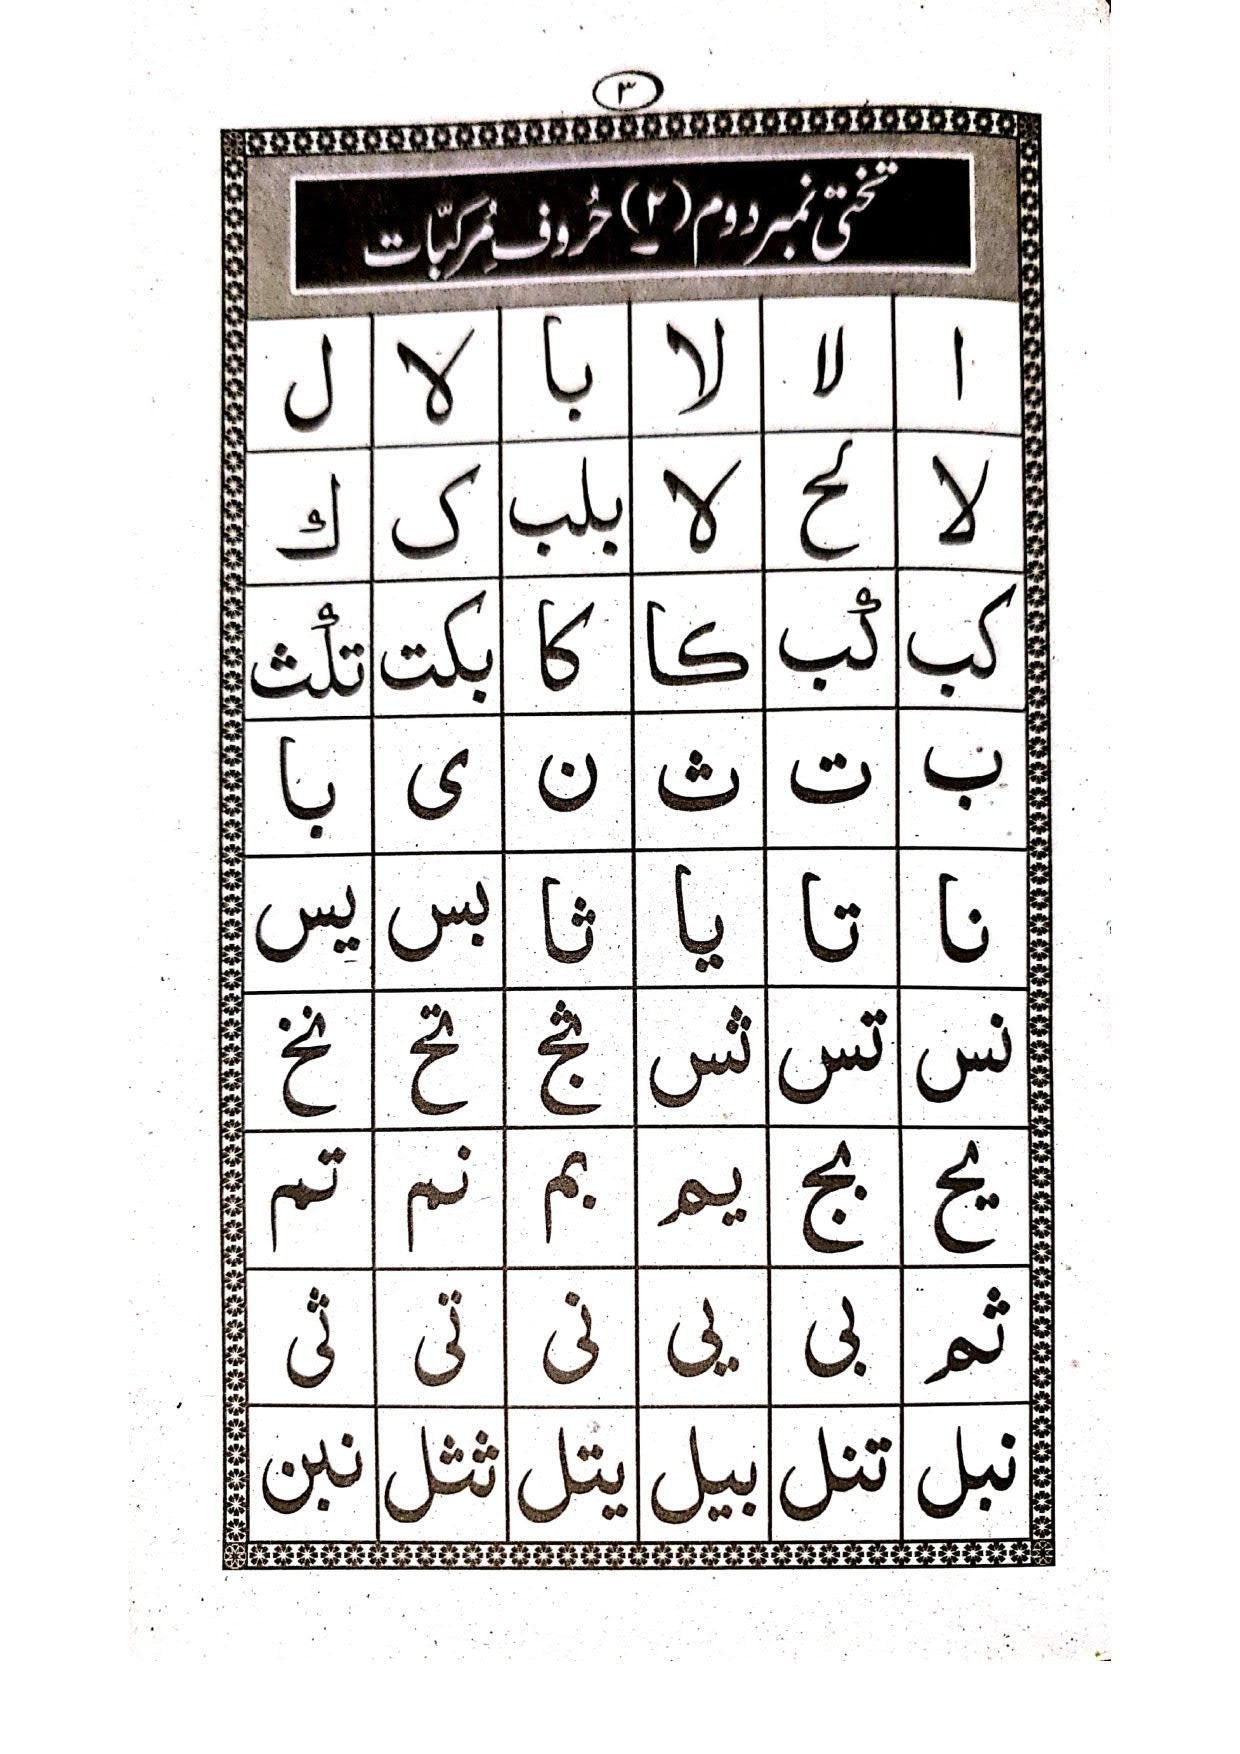 ٣
تختی نمبر دوم (۲) حُروفِ مُرکبّات
ا لا لا با لا ل
لا لح لا بلب ک ك
کب كب كا کا بکت تلث
ب ت ث ن ی با
نا تا یا ثا بس یس
نس تس ثس ثج تح نخ
یح بج یم بم نم تم
ثم بی یی نی تی ثی
نبل تنل بیل یتل ثثل نبن